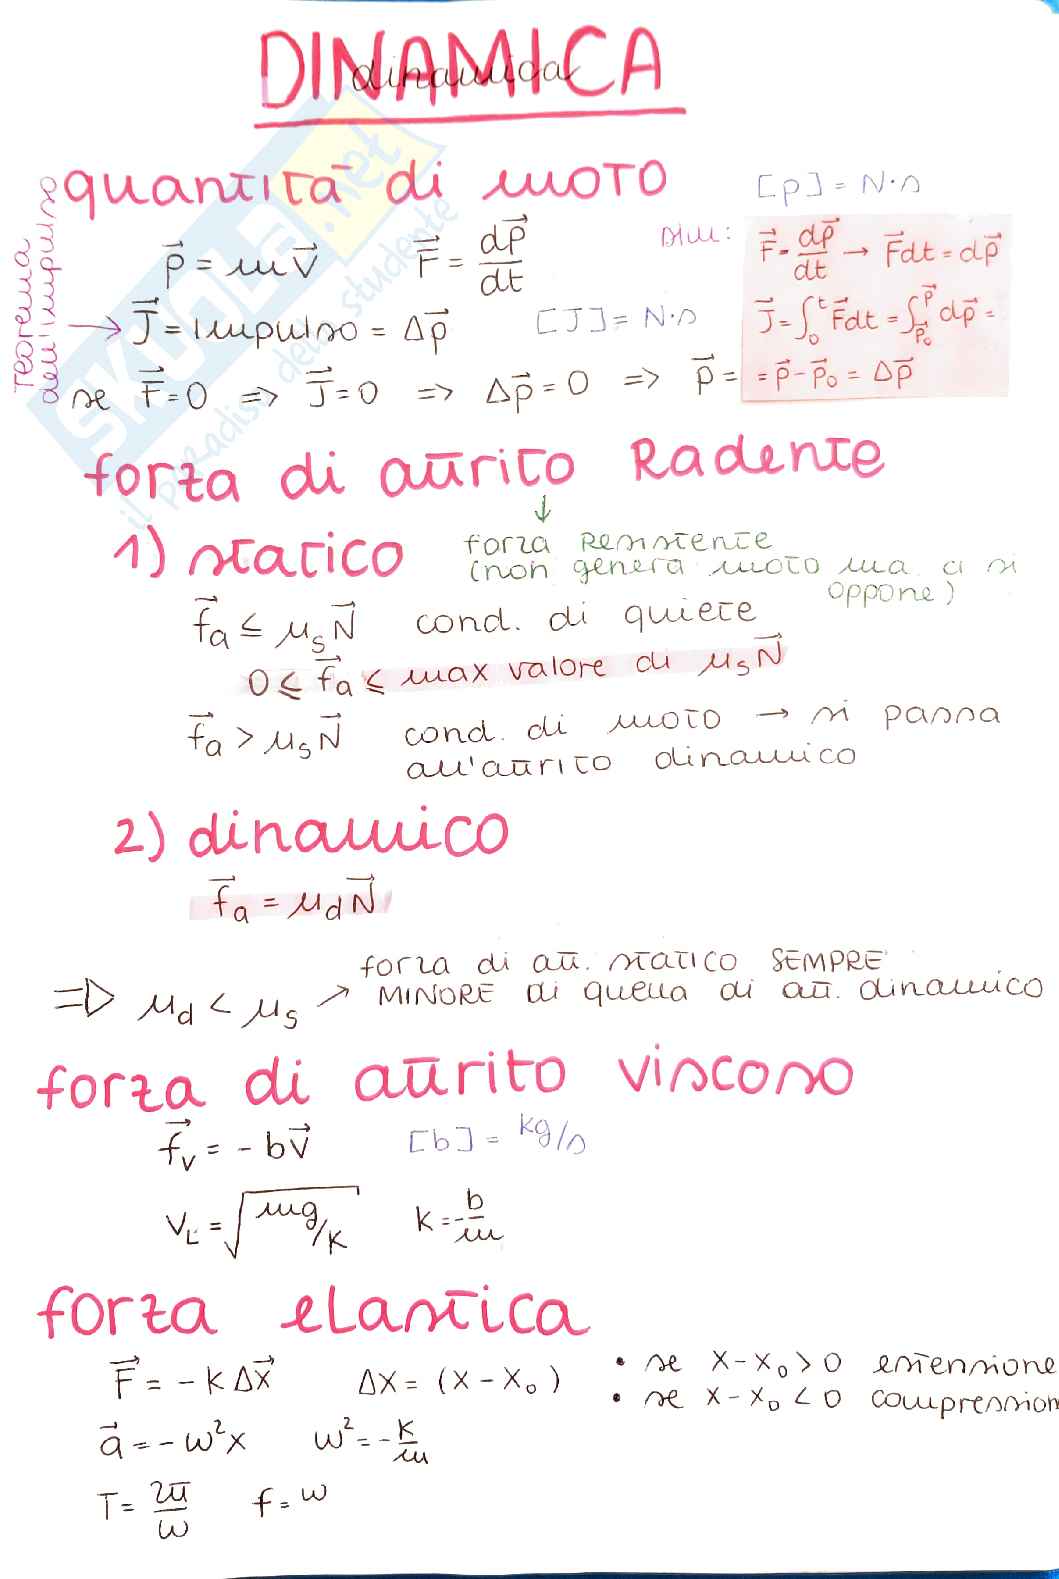 DINAMICA
dinamica
quantità di moto
[p] = N·s
p⃗ = mv⃗ F⃗ = dp⃗/dt
Dim: F⃗ = dp⃗/dt → F⃗dt = dp⃗
Teorema dell'impulso
→ J⃗ = Impulso = Δp⃗ [J] = N·s
J⃗ = ∫₀ᵗ F⃗dt = ∫_p⃗₀^p⃗ dp⃗ =
= p⃗ - p⃗₀ = Δp⃗
se F⃗ = 0 => J⃗ = 0 => Δp⃗ = 0 => p⃗ =
forza di attrito Radente
↓
1) statico
forza Resistente
(non genera moto ma ci si
oppone)
f⃗a ≤ μs N⃗ cond. di quiete
0 ≤ f⃗a ≤ max valore di μs N⃗
f⃗a > μs N⃗ cond. di moto → si passa
all'attrito dinamico
2) dinamico
f⃗a = μd N⃗
=> μd < μs ↗ forza di att. statico SEMPRE
MINORE di quella di att. dinamico
forza di attrito viscoso
f⃗v = - bv⃗ [b] = kg/s
VL = √mg/K K = - b/m
forza elastica
F⃗ = - K Δx⃗ Δx = (x - x₀)
• se x - x₀ > 0 estensione
• se x - x₀ < 0 compression
a⃗ = - ω²x ω² = - K/m
T = 2π/ω f = ω
SKUOLA.net
il paradiso dello studente